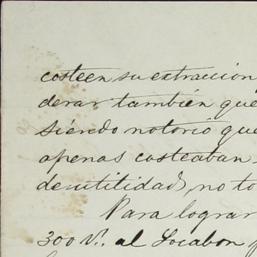 costeen su extraccion
derar también que
siendo notorio que
apenas costeaban
de utilidad, no to
Para lograr
300 Vs. al Socabon